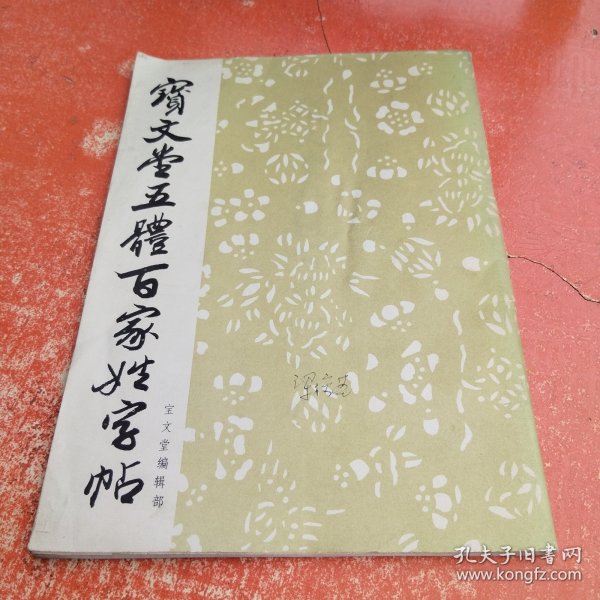 寳文堂五體百家姓字帖
宝文堂编辑部
孔夫子旧書网
www.kongfz.com